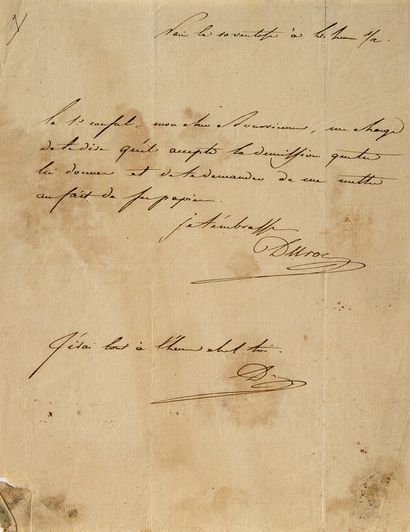 ce 10 ventose à h. heures 1/2.
le 1er consul, mon cher Bourrienne, me charge
de te dire qu'il accepte la demission que tu
lui donnes et de te demander de me mettre
au fait de ses papiers.
je t'embrasse
Duroc
J'irai tout à l'heure chez toi.
D.